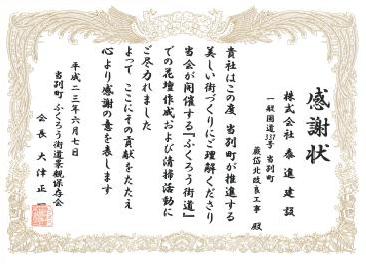 感謝状
株式会社 泰進建設
一般国道337号 当別町
蕨岱北改良工事 殿
貴社はこの度 当別町が推進する
美しい街づくりにご理解くださり
当会が開催する『ふくろう街道』
での花壇作成および清掃活動に
ご尽力れました
よって ここにその貢献をたたえ
心より感謝の意を表します
平成二三年六月七日
当別町 ふくろう街道景観保存会
会長 大津正一